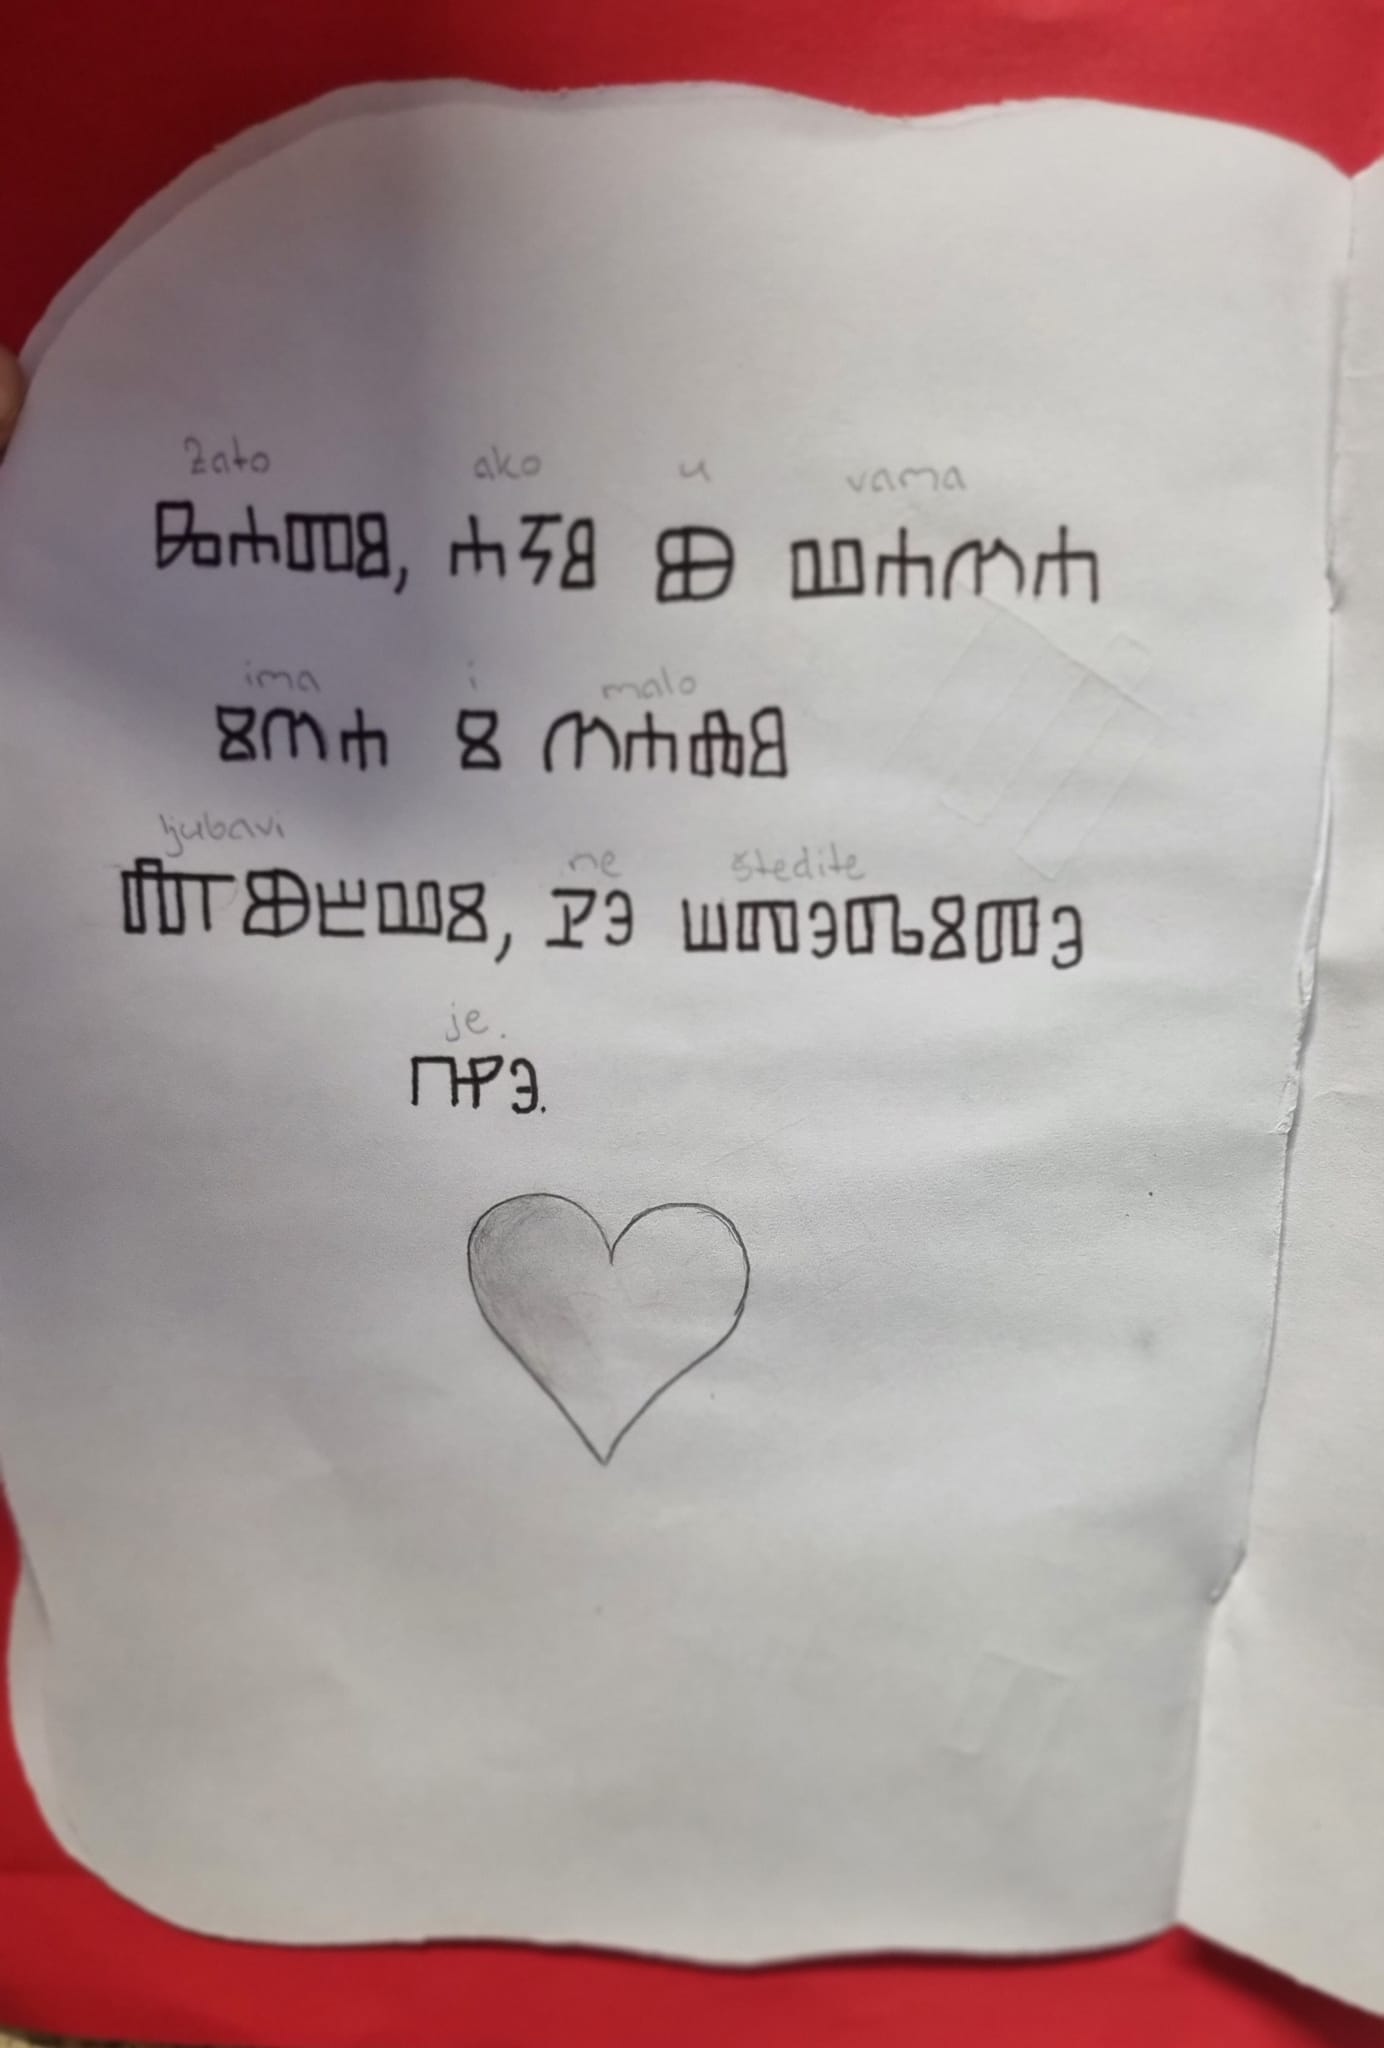 Zato ako u vama
ⰈⰀⰕⰑ, ⰀⰍⰑ Ⱆ ⰂⰀⰏⰀ
ima i malo
ⰋⰏⰀ Ⰻ ⰏⰀⰎⰑ
ljubavi ne štedite
ⰎⰌⰖⰁⰀⰂⰋ, ⰐⰅ ⰞⰕⰅⰄⰋⰕⰅ
je.
ⰌⰅ.